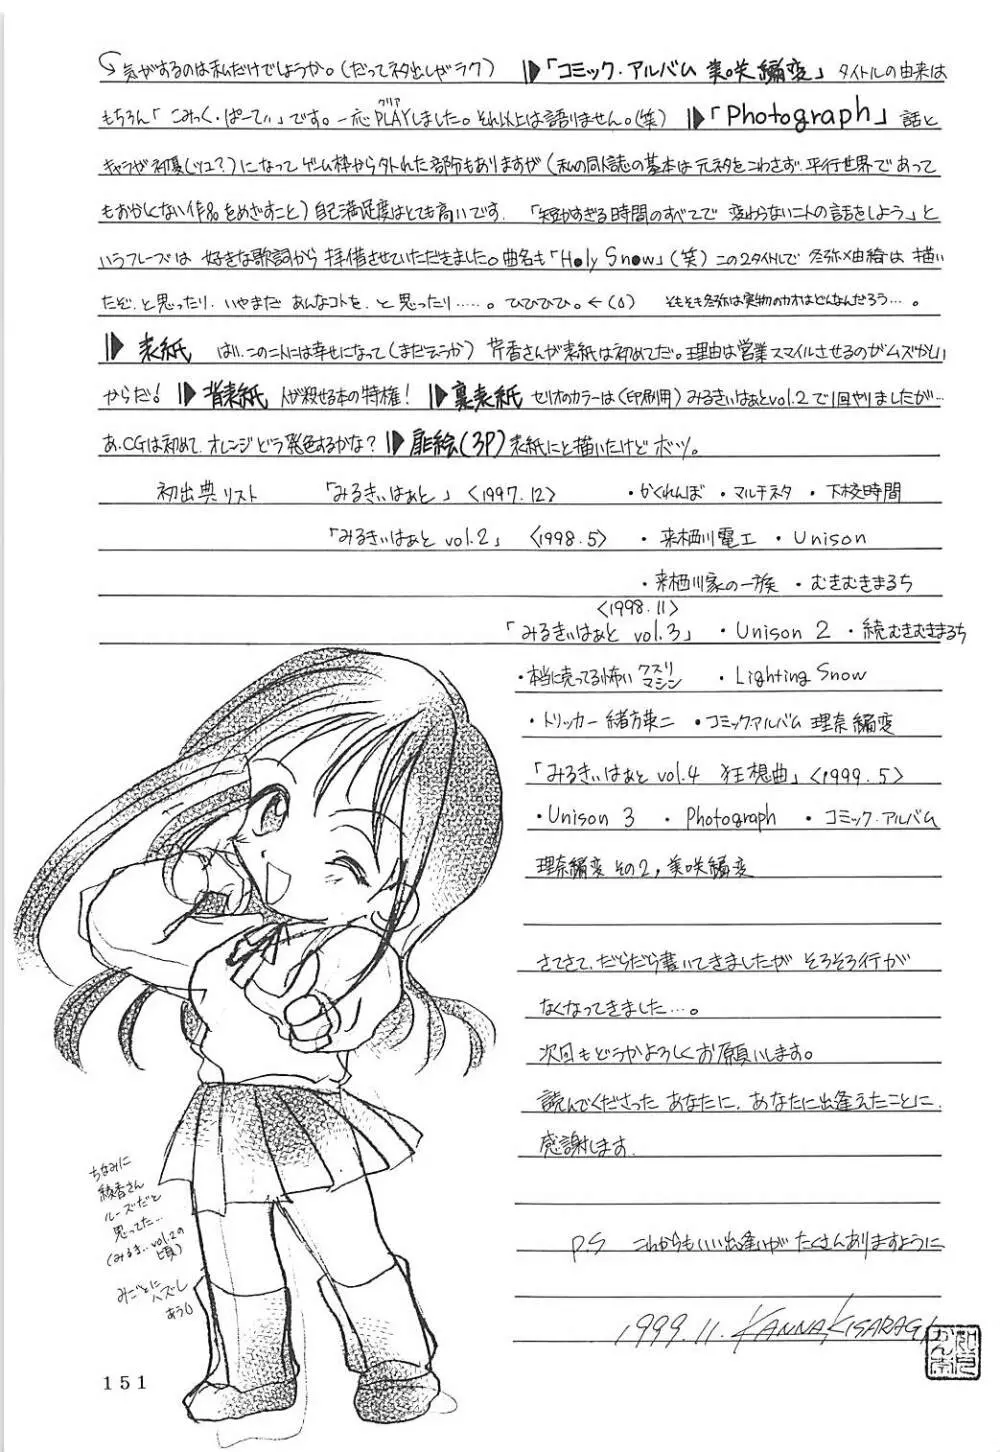 気がするのは私だけでしょうか。(だってネタ出しがラク) 「コミック・アルバム 美咲編変」 タイトルの由来は
もちろん「こみっく・ぱーてぃ」です。一応PLAYしました。それ以上は語りません。(笑) 「Photograph」 話と
クリア
キャラが初優(ツユ?)になってゲーム枠から外れた部分もありますが(私の同人誌の基本は元ネタをこわさず、平行世界であって
もおかしくない作品をめざすこと)自己満足度はとても高いです。「短かすぎる時間のすべてで 変わらない二人の話をしよう」と
いうフレーズは 好きな歌詞から 拝借させていただきました。曲名も「Holy Snow」(笑) この2タイトルで 冬弥×由綺は 描い
たぞ、と思ったり、いやまだ あんなコトを、と思ったり……。ひひひひ。← そもそも冬弥は実物のカオはどんなんだろう…。
表紙 はい、この二人には幸せになって(まだそうか) 芹香さんが表紙は初めてだ。理由は営業スマイルさせるのがムズかしい
からだ! 背表紙 人が殺せる本の特権! 裏表紙 セリオのカラーは(印刷用)みるきぃはぁとvol.2で1回やりましたが…
あ、CGは初めて、オレンジどう発色するかな? 扉絵(3P) 表紙にと描いたけどボツ。
初出典リスト 「みるきぃはぁと」〈1997.12〉 ・かくれんぼ ・マルチネタ ・下校時間
「みるきぃはぁと vol.2」 〈1998.5〉 ・来栖川電工 ・Unison
・来栖川家の一族 ・むきむきまるち
〈1998.11〉
「みるきぃはぁと vol.3」 ・Unison 2 ・続むきむきまるち
・本当に売ってる怖い クスリ マシン ・Lighting Snow
・トリッカー緒方英二 ・コミックアルバム 理奈編変
「みるきぃはぁと vol.4 狂想曲」〈1999.5〉
・Unison 3 ・Photograph ・コミック・アルバム
理奈編変 その2, 美咲編変
さてさて、だらだら書いてきましたが そろそろ行が
なくなってきました…。
次回もどうかよろしくお願いします。
読んでくださった あなたに、あなたに出逢えたことに、
感謝します。
P.S これからもいい出逢いが たくさんありますように
1999.11. KANNA KISARAGI
如月かん奈
ちなみに
綾香さん
ルーズだと
思ってた…
(みるき..vol.2の
頃)
みごとに
ハズレ
あうぅ
151